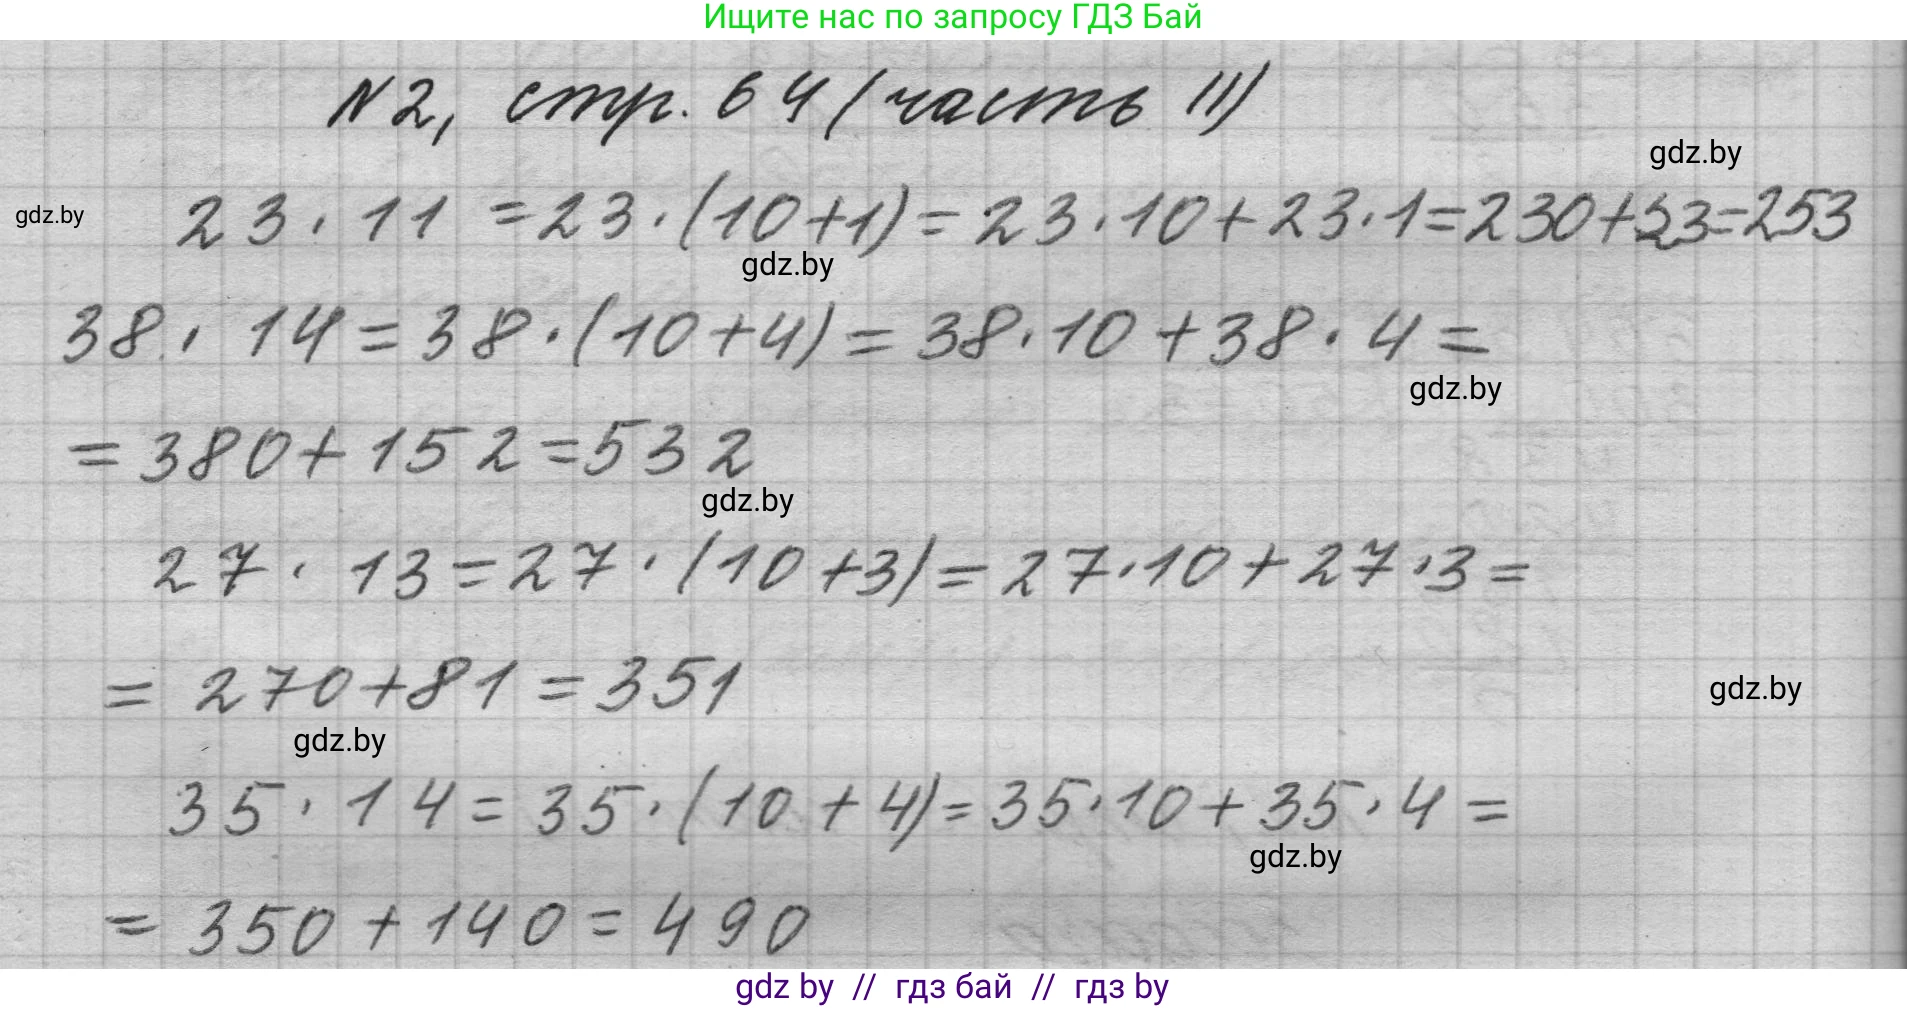 Ищите нас по запросу ГДЗ Бай
N2, стр. 64 (часть II)
gdz.by
gdz.by
23 · 11 = 23 · (10+1) = 23 · 10 + 23 · 1 = 230 + 23 = 253
gdz.by
38 · 14 = 38 · (10+4) = 38 · 10 + 38 · 4 =
gdz.by
= 380 + 152 = 532
gdz.by
27 · 13 = 27 · (10+3) = 27 · 10 + 27 · 3 =
= 270 + 81 = 351
gdz.by
gdz.by
35 · 14 = 35 · (10 + 4) = 35 · 10 + 35 · 4 =
gdz.by
= 350 + 140 = 490
gdz by // гдз бай // гдз by